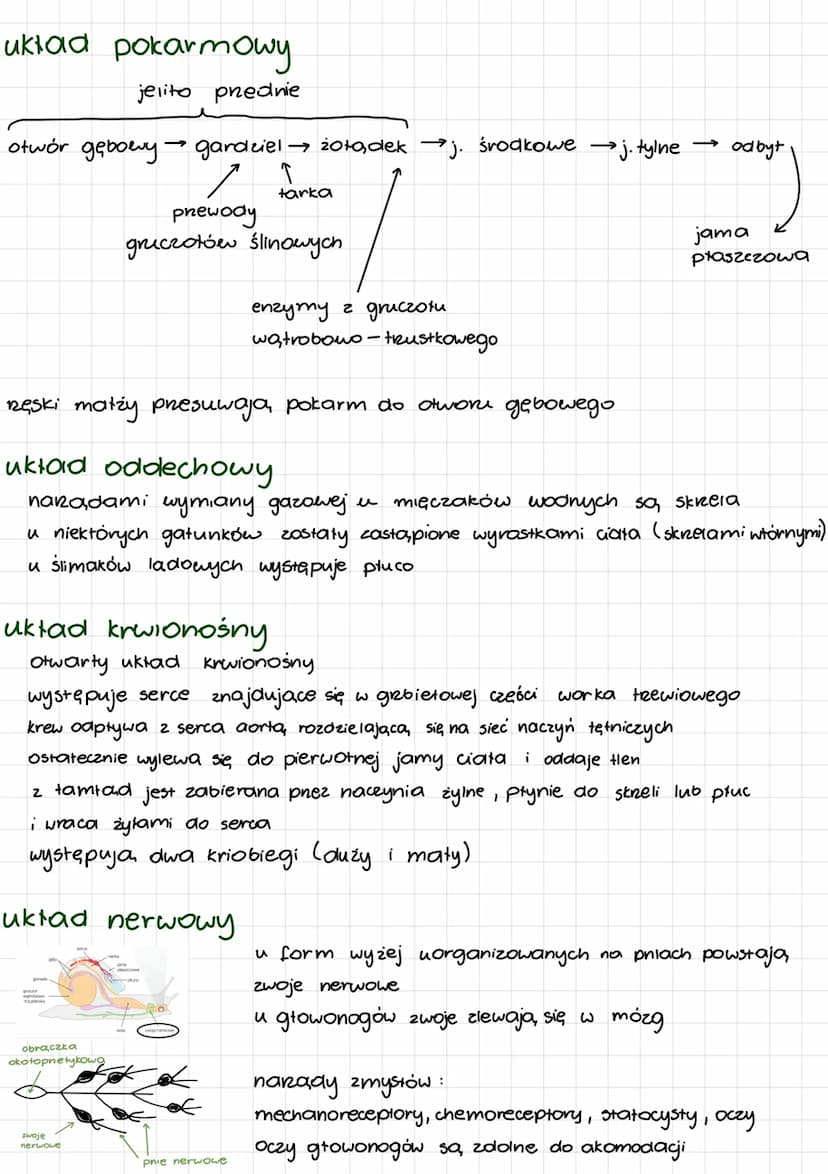 układ pokarmowy
jelito przednie
otwór gębowy → gardziel → żołądek → j. środkowe → j. tylne → odbyt
tarka
przewody
gruczołów ślinowych
jama
płaszczowa
enzymy z gruczołu
wątrobowo-trzustkowego
rzęski małży przesuwają pokarm do otworu gębowego
układ oddechowy
narządami wymiany gazowej u mięczaków wodnych są skrzela
u niektórych gatunków zostały zastąpione wyrostkami ciała (skrzelami wtórnymi)
u ślimaków lądowych występuje płuco
układ krwionośny
otwarty układ krwionośny
występuje serce znajdujące się w grzbietowej części worka trzewiowego
krew odpływa z serca aortą rozdzielającą się na sieć naczyń tętniczych
ostatecznie wylewa się do pierwotnej jamy ciała i oddaje tlen
z tamtąd jest zabierana przez naczynia żylne, płynie do skrzeli lub płuc
i wraca żyłami do serca
występują dwa kriobiegi (duży i mały)
układ nerwowy
u form wyżej uorganizowanych na pniach powstają
zwoje nerwowe
u głowonogów zwoje zlewają się w mózg
serce
nerka
obrączka
okołoprzełykową
zwoje
nerwowe
pnie nerwowe
narządy zmysłów:
mechanoreceptory, chemoreceptory, statocysty, oczy
oczy głowonogów są zdolne do akomodacji